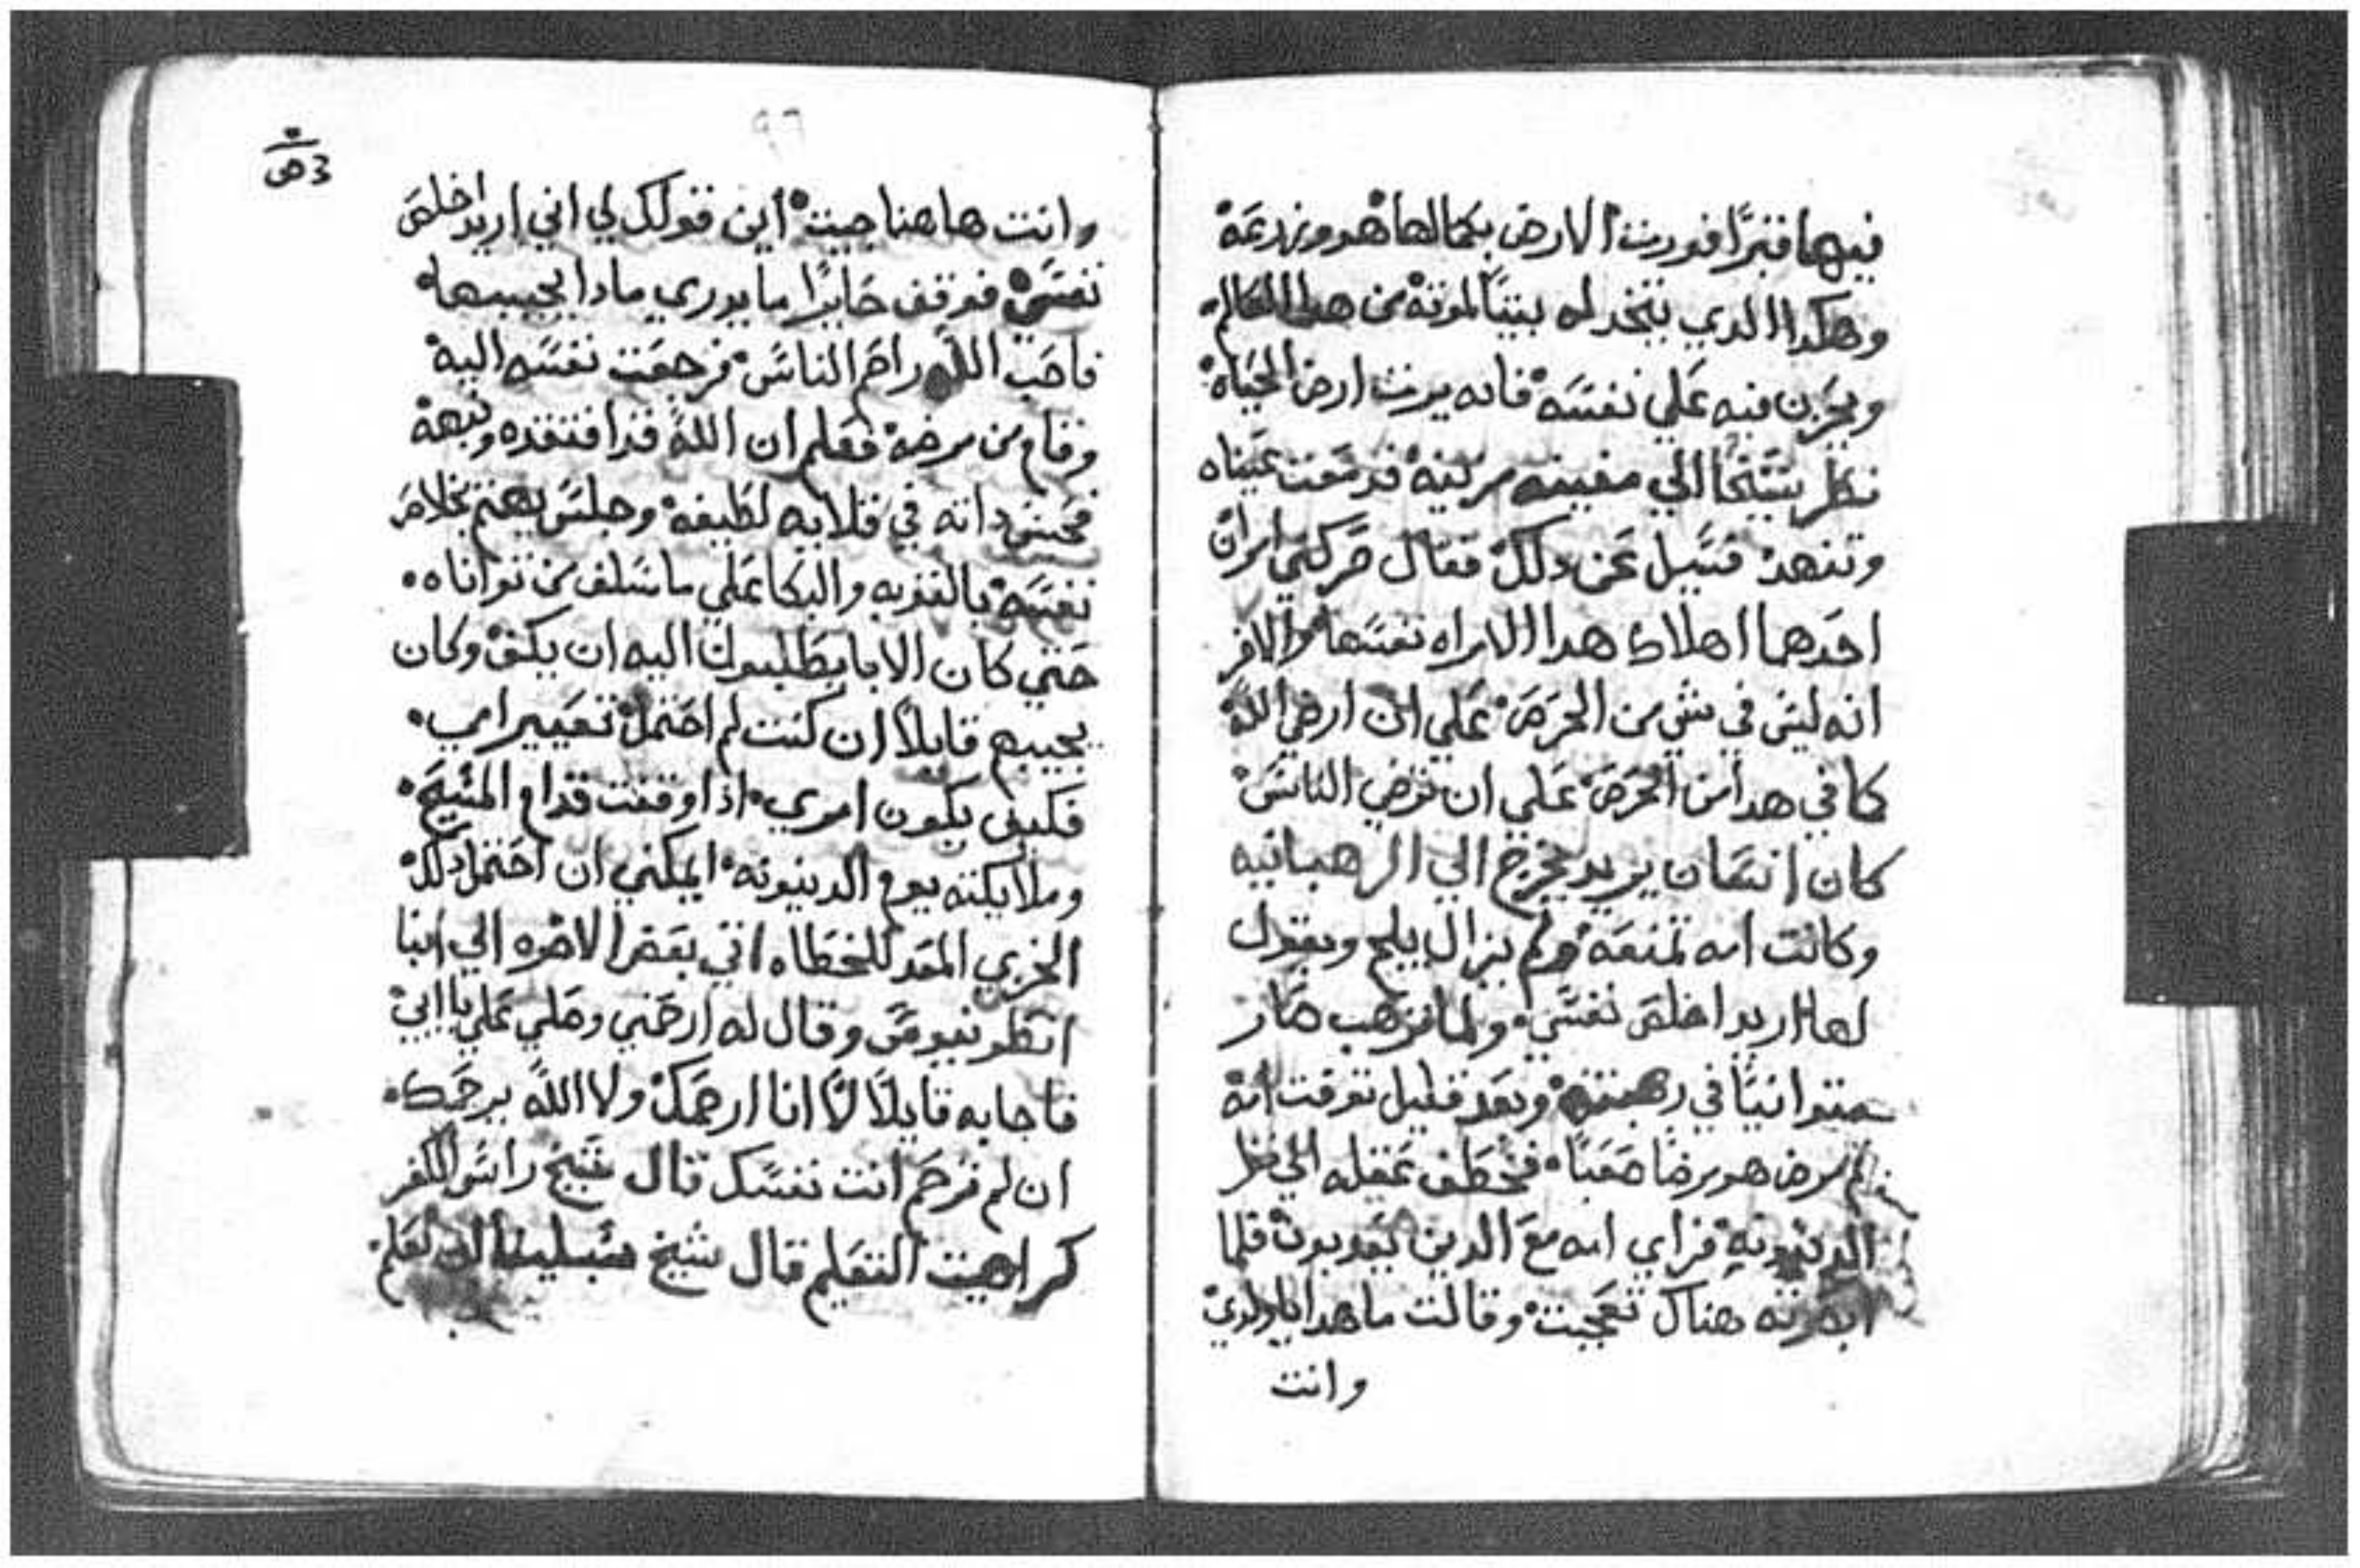 فيها قبرًا فورث الارض بكمالها هو وزرعه
وهكدا الدي يتخد له بيتًا لموته من هدا العالم
ويحزن فيه علي نفسه فانه يرث ارض الحياه
نظر شيخًا الي مغنيه مزينه فدمعت عيناه
وتنهد فسيل عن دلك فقال حركني امران
احدهما اهلاك هدا الامراه نفسها والاخر
انه ليس في شي من الحرص علي ان ارضي الله
كما في هدا من الحرص علي ان ترضي الناس
كان انسان يريد يخرج الي الرهبانيه
وكانت امه تمنعه ولم يزال يلج ويقول
لها اريد اخلص نفسي ولما ترهب صار
متوانيًا في رهبنته وبعد قليل توفت امه
تم مرض هو مرضًا صعبًا فخطف عقله الي
الدينونه فراي امه مع الدين يعدبون فلما
ابصرته هناك تعجبت وقالت ما هدا يا ولدي
وانت
٩٦
وانت هاهنا جيت اين قولك لي اني اريد اخلص
نفسي فوقف حايرًا ما يدري مادا يجيبها
فاحب الله راحم الناس فرجعت نفسه اليه
وقام من مرضه فعلم ان الله قد افتقده ونبهه
فحبس داته في قلايه لطيفه وجلس يهتم بخلاص
نفسه بالتوبه والبكا علي ما سلف من تواناه
حتي كان الابا يطلبون اليه ان يكف وكان
يجيبهم قايلًا ان كنت لم احتمل تعيير امي
فكيف يكون امري اذا وقفت قدام المسيح
وملايكته يوم الدينونه ايمكني ان احتمل دلك
الخزي المعد للخطاه اتي بعض الاخوه الي انبا
انطونيوس وقال له ارحمني وصلي علي يا ابي
فاجابه قايلًا لا انا ارحمك ولا الله يرحمك
ان لم ترحم انت نفسك قال شيخ راس الكفر
كراهيت التعليم قال شيخ